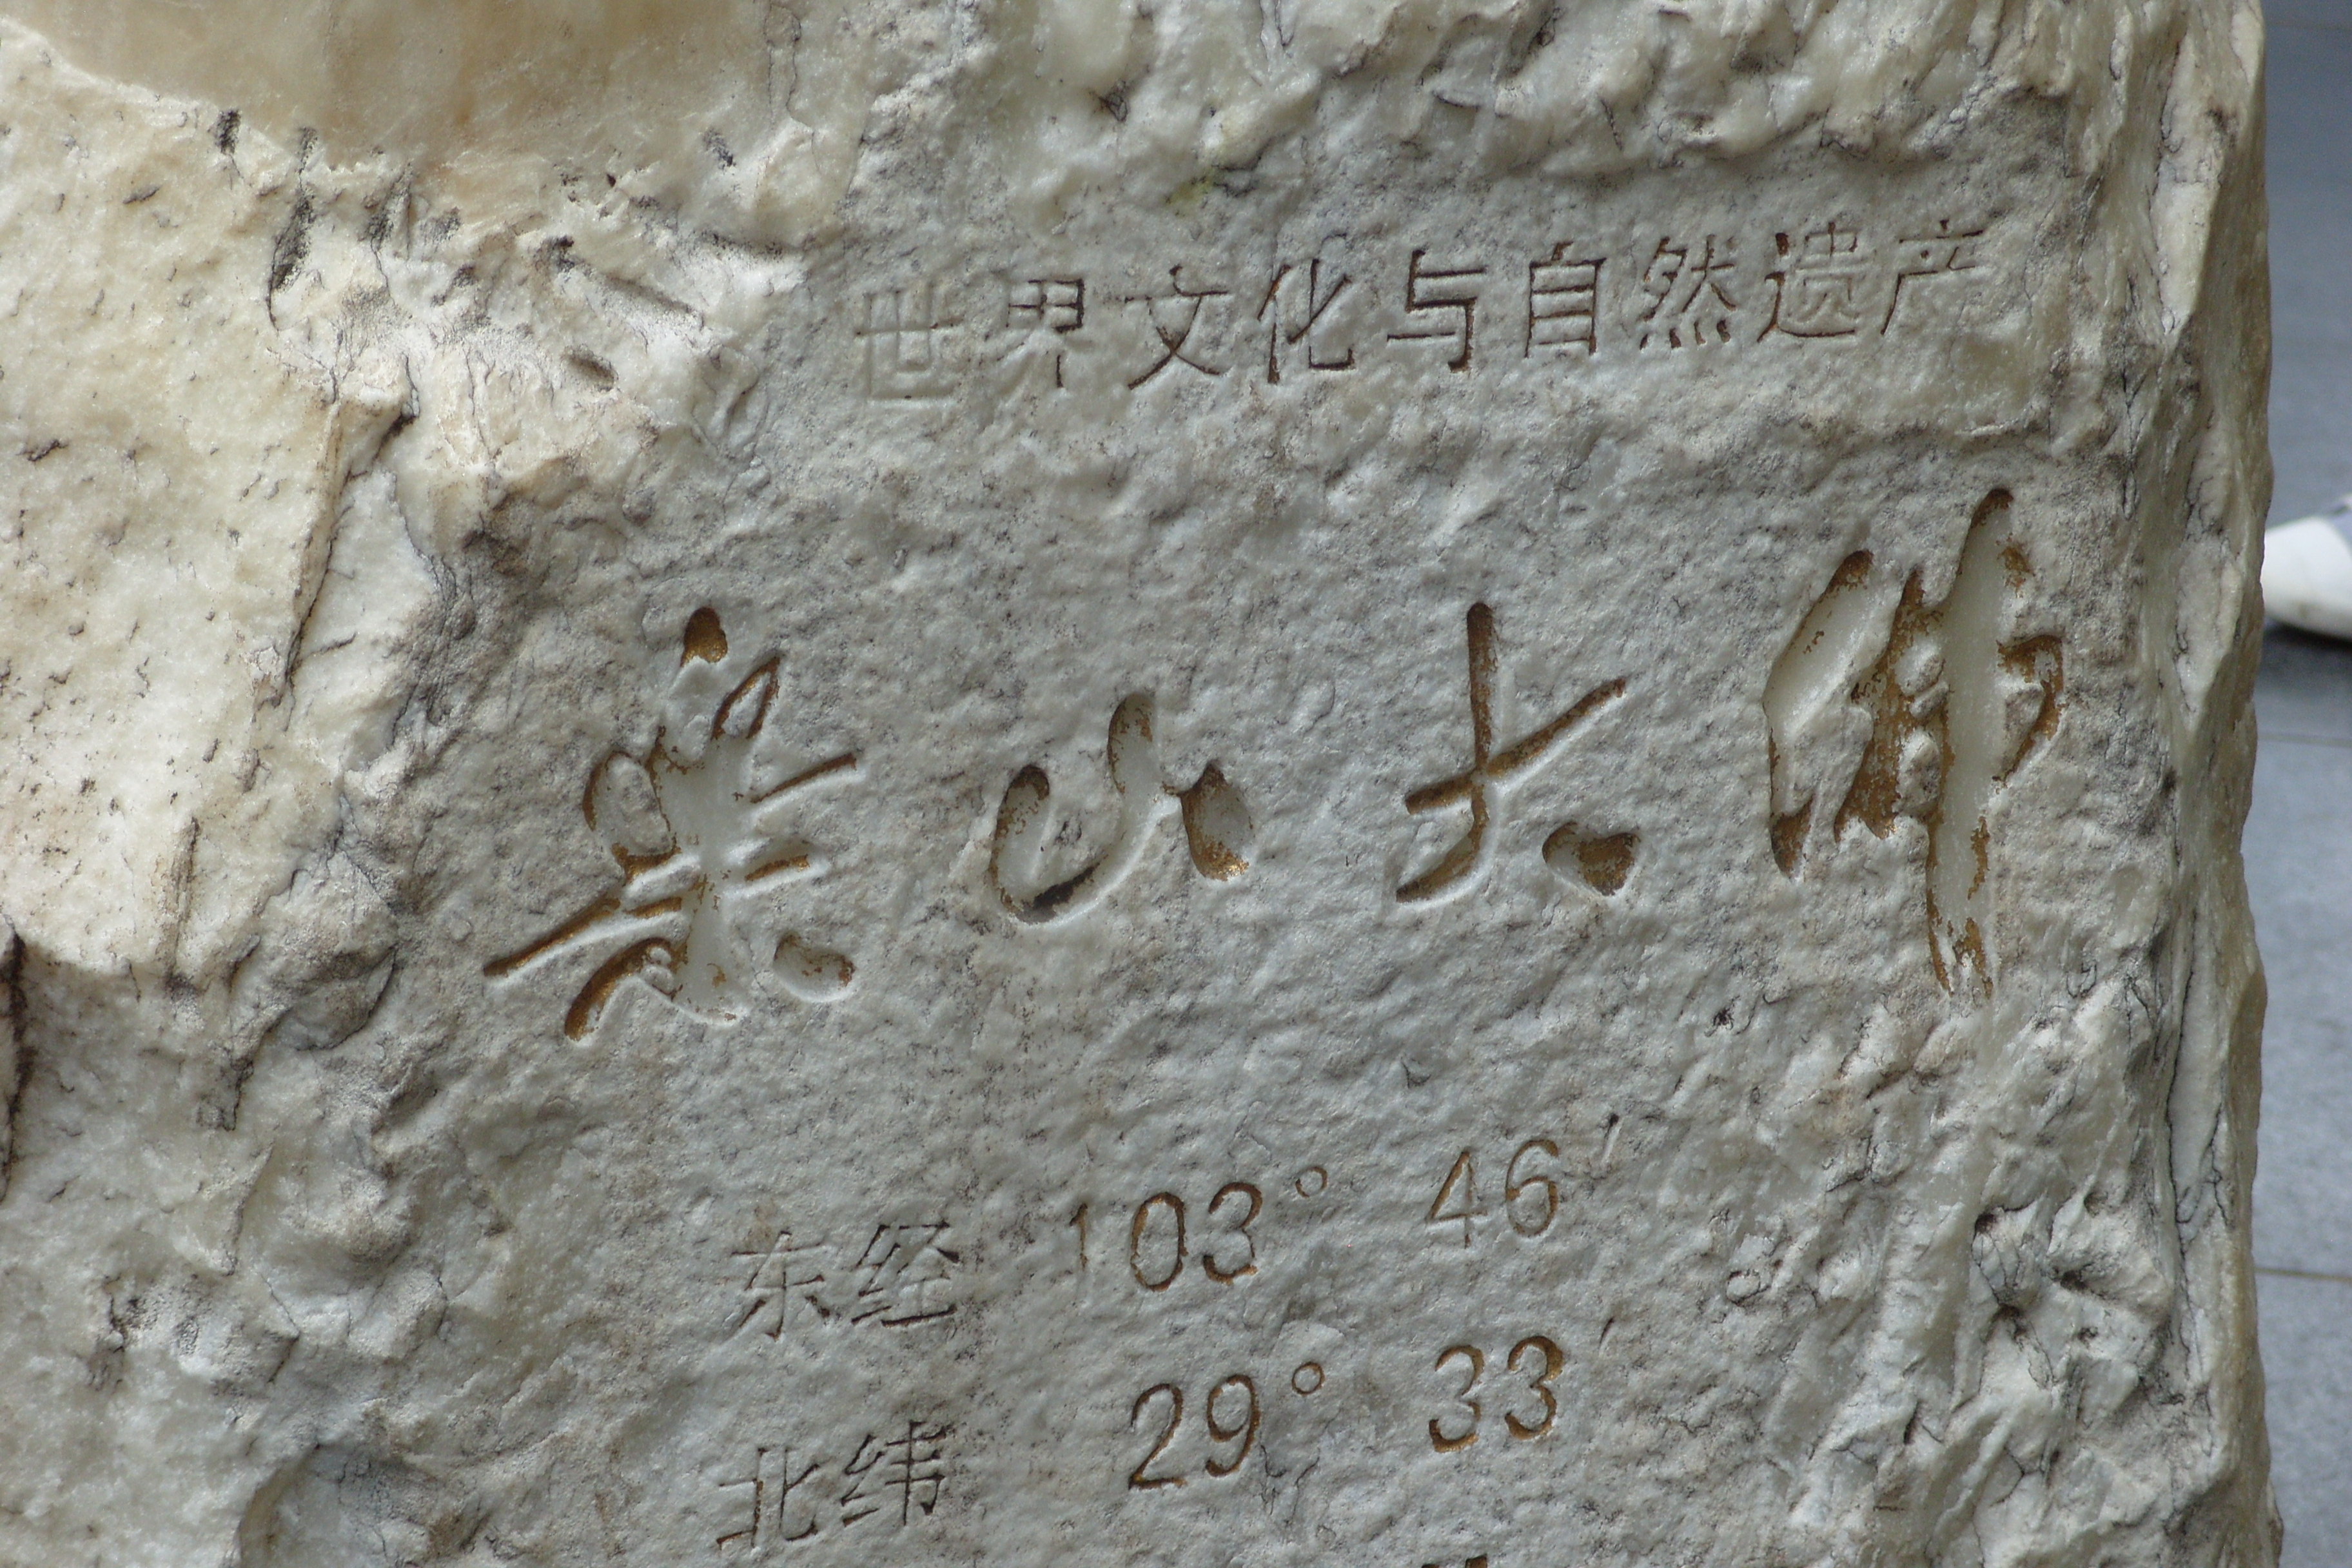 世界文化与自然遗产
樂山大佛
东经 103° 46′
北纬 29° 33′